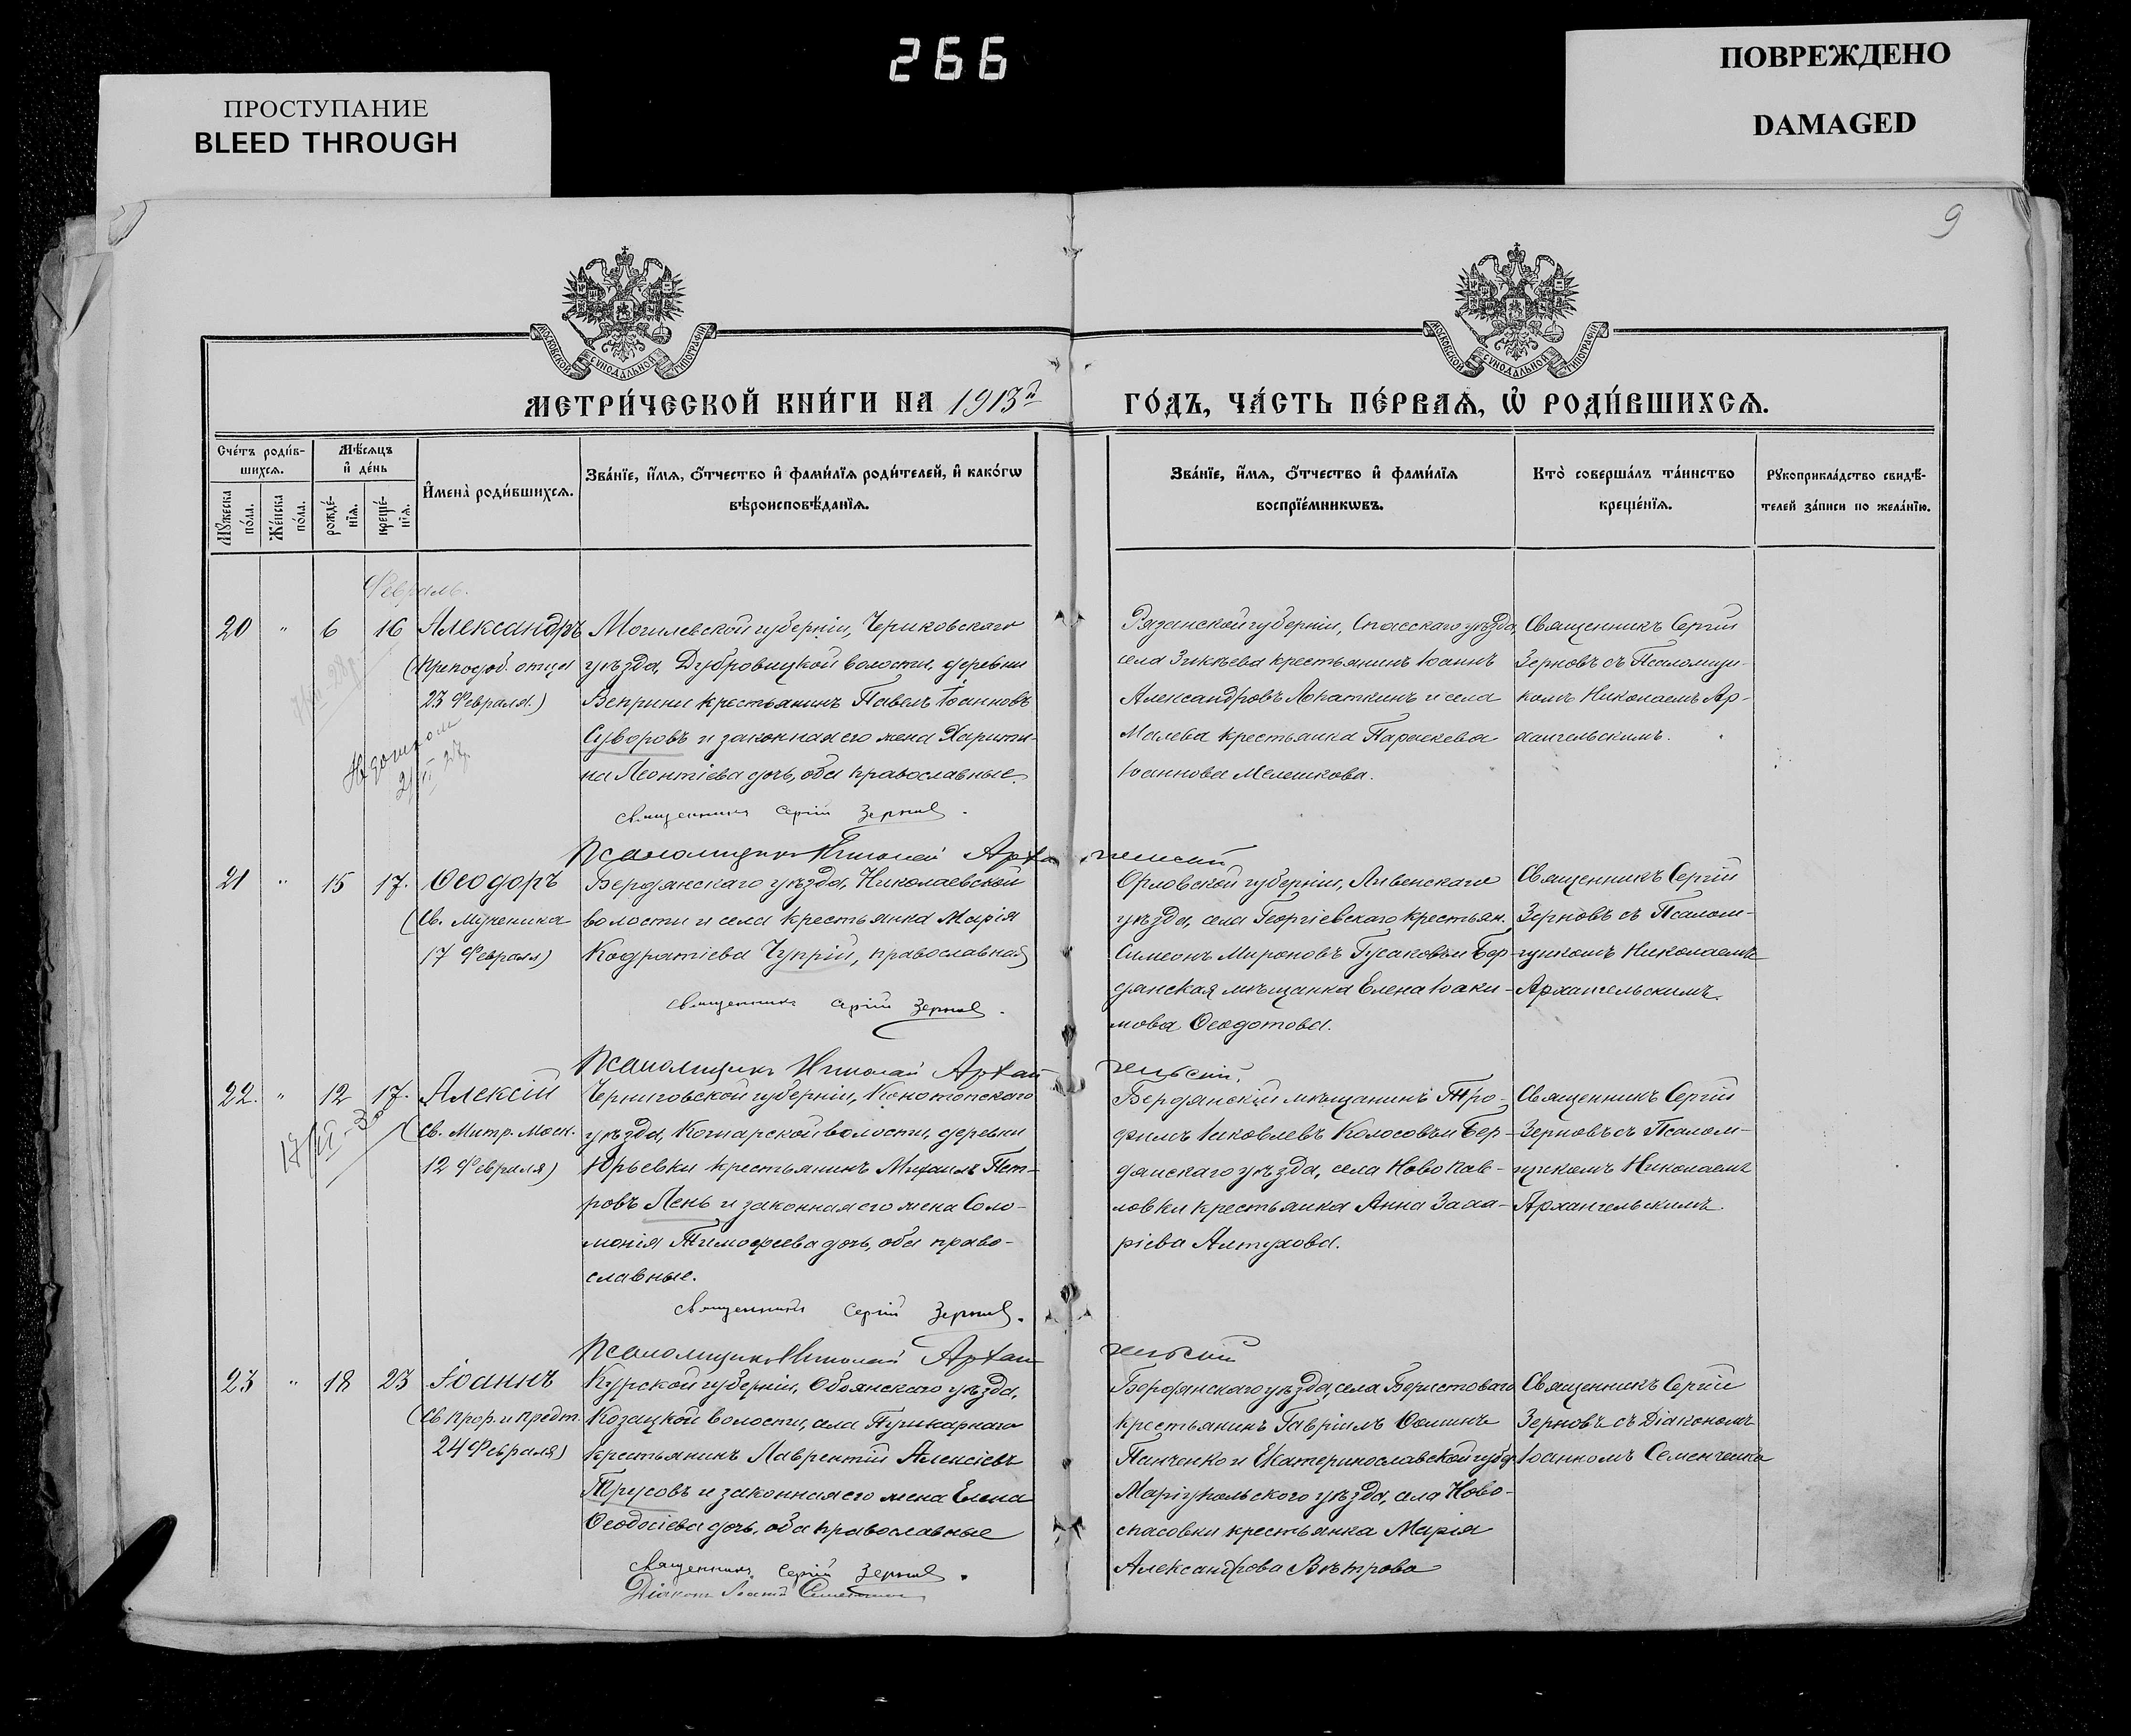 266
ПРОСТУПАНИЕ
BLEED THROUGH
ПОВРЕЖДЕНО
DAMAGED
9
МОСКОВСКОЙ СУНОДАЛЬНОЙ ТИПОГРАФІИ
МОСКОВСКОЙ СУНОДАЛЬНОЙ ТИПОГРАФІИ
МЕТРИ́ЧЕСКОЙ КНИ́ГИ НА 1913й ГО́ДЪ, ЧА́СТЬ ПЕ́РВАѦ, Ѡ РОДИ́ВШИХСѦ.
Сче́тъ роди́в-
шихсѧ.
Мѣ́сѧцъ
и҆ де́нь
Мꙋ́жеска
по́ла.
Же́нска
по́ла.
рожде́-
нїѧ.
креще́-
нїѧ.
И҆мена̀ роди́вшихсѧ.
Зва́нїе, и҆́мѧ, ѻ҆́тчество и҆ фами́лїѧ роди́телей, и҆ како́гѡ
вѣроисповѣ́данїѧ.
Зва́нїе, и҆́мѧ, ѻ҆́тчество и҆ фами́лїѧ
воспрїе́мникѡвъ.
Кто̀ соверша́лъ та́инство
креще́нїѧ.
Рꙋкоприкла́дство свидѣ́-
телей за́писи по жела́нїю.
Февраль.
20 " 6 16 Александръ
(Преподоб. отца
23 Февраля.)
Могилевской губерніи, Чериковскаго
уѣзда, Дубровицкой волости, деревни
Веприни крестьянинъ Павелъ Іоанновъ
Суворовъ и законная его жена Харити-
на Леонтіева дочь, оба православные.
Священникъ Сергій Зерновъ.
Псаломщикъ Николай Архангельскій
Рязанской губерніи, Спасскаго уѣзда,
села крестьянинъ Іоаннъ
Александровъ Лопаткинъ и села
Малева крестьянка Параскева
Іоаннова Мелешкова.
Священникъ Сергій
Зерновъ съ Псаломщи-
комъ Николаемъ Ар-
хангельскимъ.
21 " 15 17. Ѳеодоръ
(Св. Мученика
17 Февраля)
Бердянскаго уѣзда, Николаевской
волости и села крестьянка Марія
Кодратіева Чупрій, православная
Священникъ Сергій Зерновъ.
Псаломщикъ Николай Архангельскій.
Орловской губерніи, Ливенскаго
уѣзда, села Георгіевскаго крестьян.
Симеонъ Мироновъ Гусаковъ и Бер-
дянская мѣщанка Елена Іоаки-
мова Ѳеодотова.
Священникъ Сергій
Зерновъ съ Псалом-
щикомъ Николаемъ
Архангельскимъ.
22. " 12 17. Алексій
(Св. Митр. Моск.
12 Февраля)
Черниговской губерніи, Конотопскаго
уѣзда, волости, деревни
Юрьевки крестьянинъ Михаилъ Пет-
ровъ Лень и законная его жена Соло-
монія Тимофеева дочь, оба право-
славные.
Священникъ Сергій Зерновъ.
Псаломщикъ Николай Архангельскій
Бердянскій мѣщанинъ Тро-
фимъ Іаковлевъ Колосовъ и Бер-
дянскаго уѣзда, села Новопав-
ловки крестьянка Анна Заха-
ріева Алтухова.
Священникъ Сергій
Зерновъ съ Псалом-
щикомъ Николаемъ
Архангельскимъ.
23 " 18 23 Іоаннъ
(Св. Прор. и Предт.
24 Февраля)
Курской губерніи, Обоянскаго уѣзда,
Козацкой волости, села Пушкарнаго
крестьянинъ Лаврентій Алексіевъ
Трусовъ и законная его жена Елена
Ѳеодосіева дочь, оба православные
Священникъ Сергій Зерновъ.
Діаконъ Іоаннъ Семенченко
Бердянскаго уѣзда, села Берестоваго
крестьянинъ Гавріилъ Ѳоминъ
Панченко и Екатеринославской губер.
Маріупольскаго уѣзда, села Ново-
спасовки крестьянка Марія
Александрова Вѣтрова
Священникъ Сергій
Зерновъ съ Діакономъ
Іоанномъ Семенченко